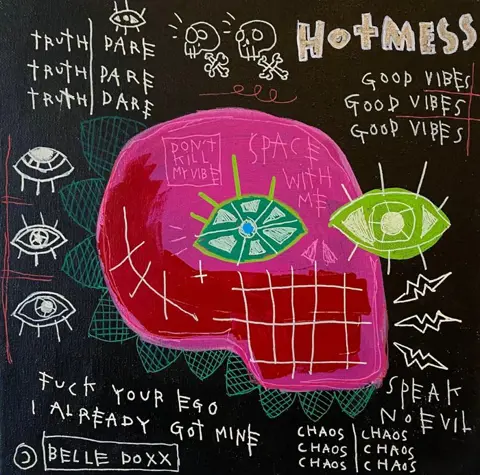 TRUTH | DARE
TRUTH | DARE
TRUTH | DARE
HOTMESS
GOOD VIBES
GOOD VIBES
GOOD VIBES
DON'T
KILL
MY VIBE
SPACE
WITH
ME
SPEAK
NO EVIL
FUCK YOUR EGO
I ALREADY GOT MINE
CHAOS | CHAOS
CHAOS | CHAOS
CHAOS | CHAOS
BELLE DOXX